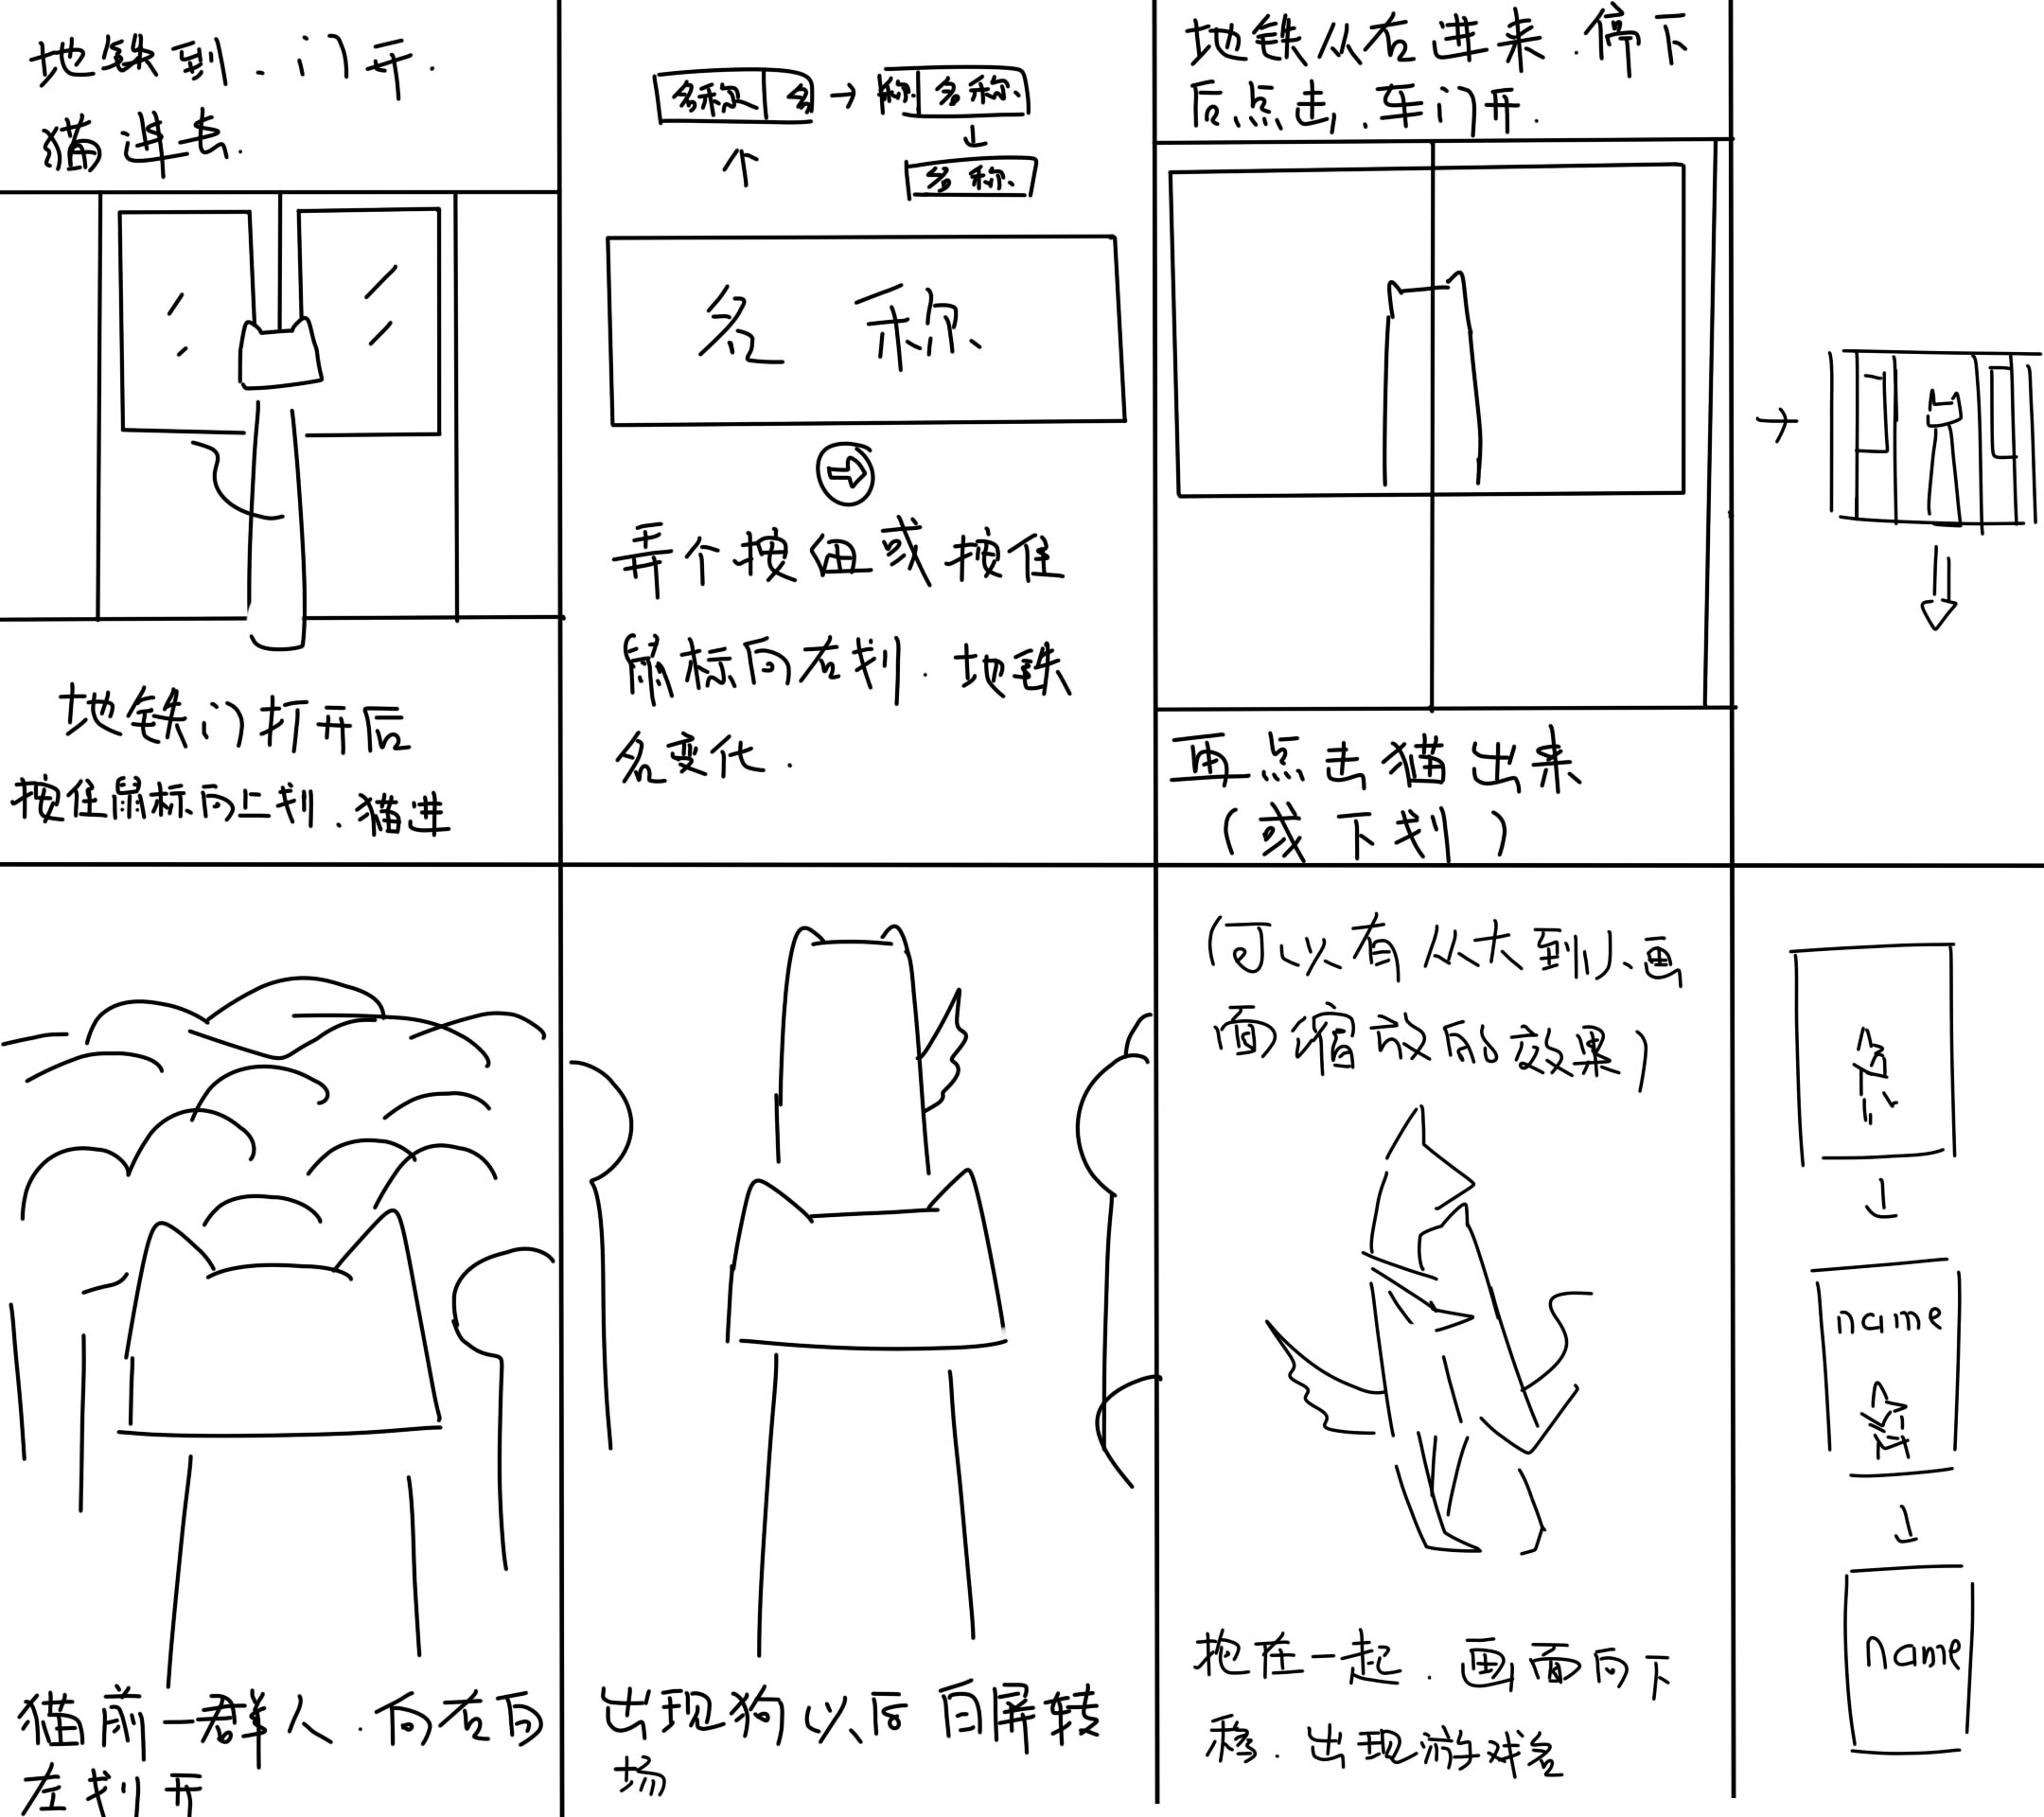 地铁到.门开.
猫进去.
地铁门打开后
按住鼠标向上划.猫进
名称 名
称.名称.
名称.
名称
弄个按钮或按住
鼠标向左划.地铁
名变化.
地铁从右进来.停下
后点击,车门开.
再点击猫出来
(或下划)
猫前一群人.向右向
左划开
出现狗以后白屏转
场
(可以有从大到小画
面缩放的效果)
抱在一起.画面向下
移.出现游戏名
name
name